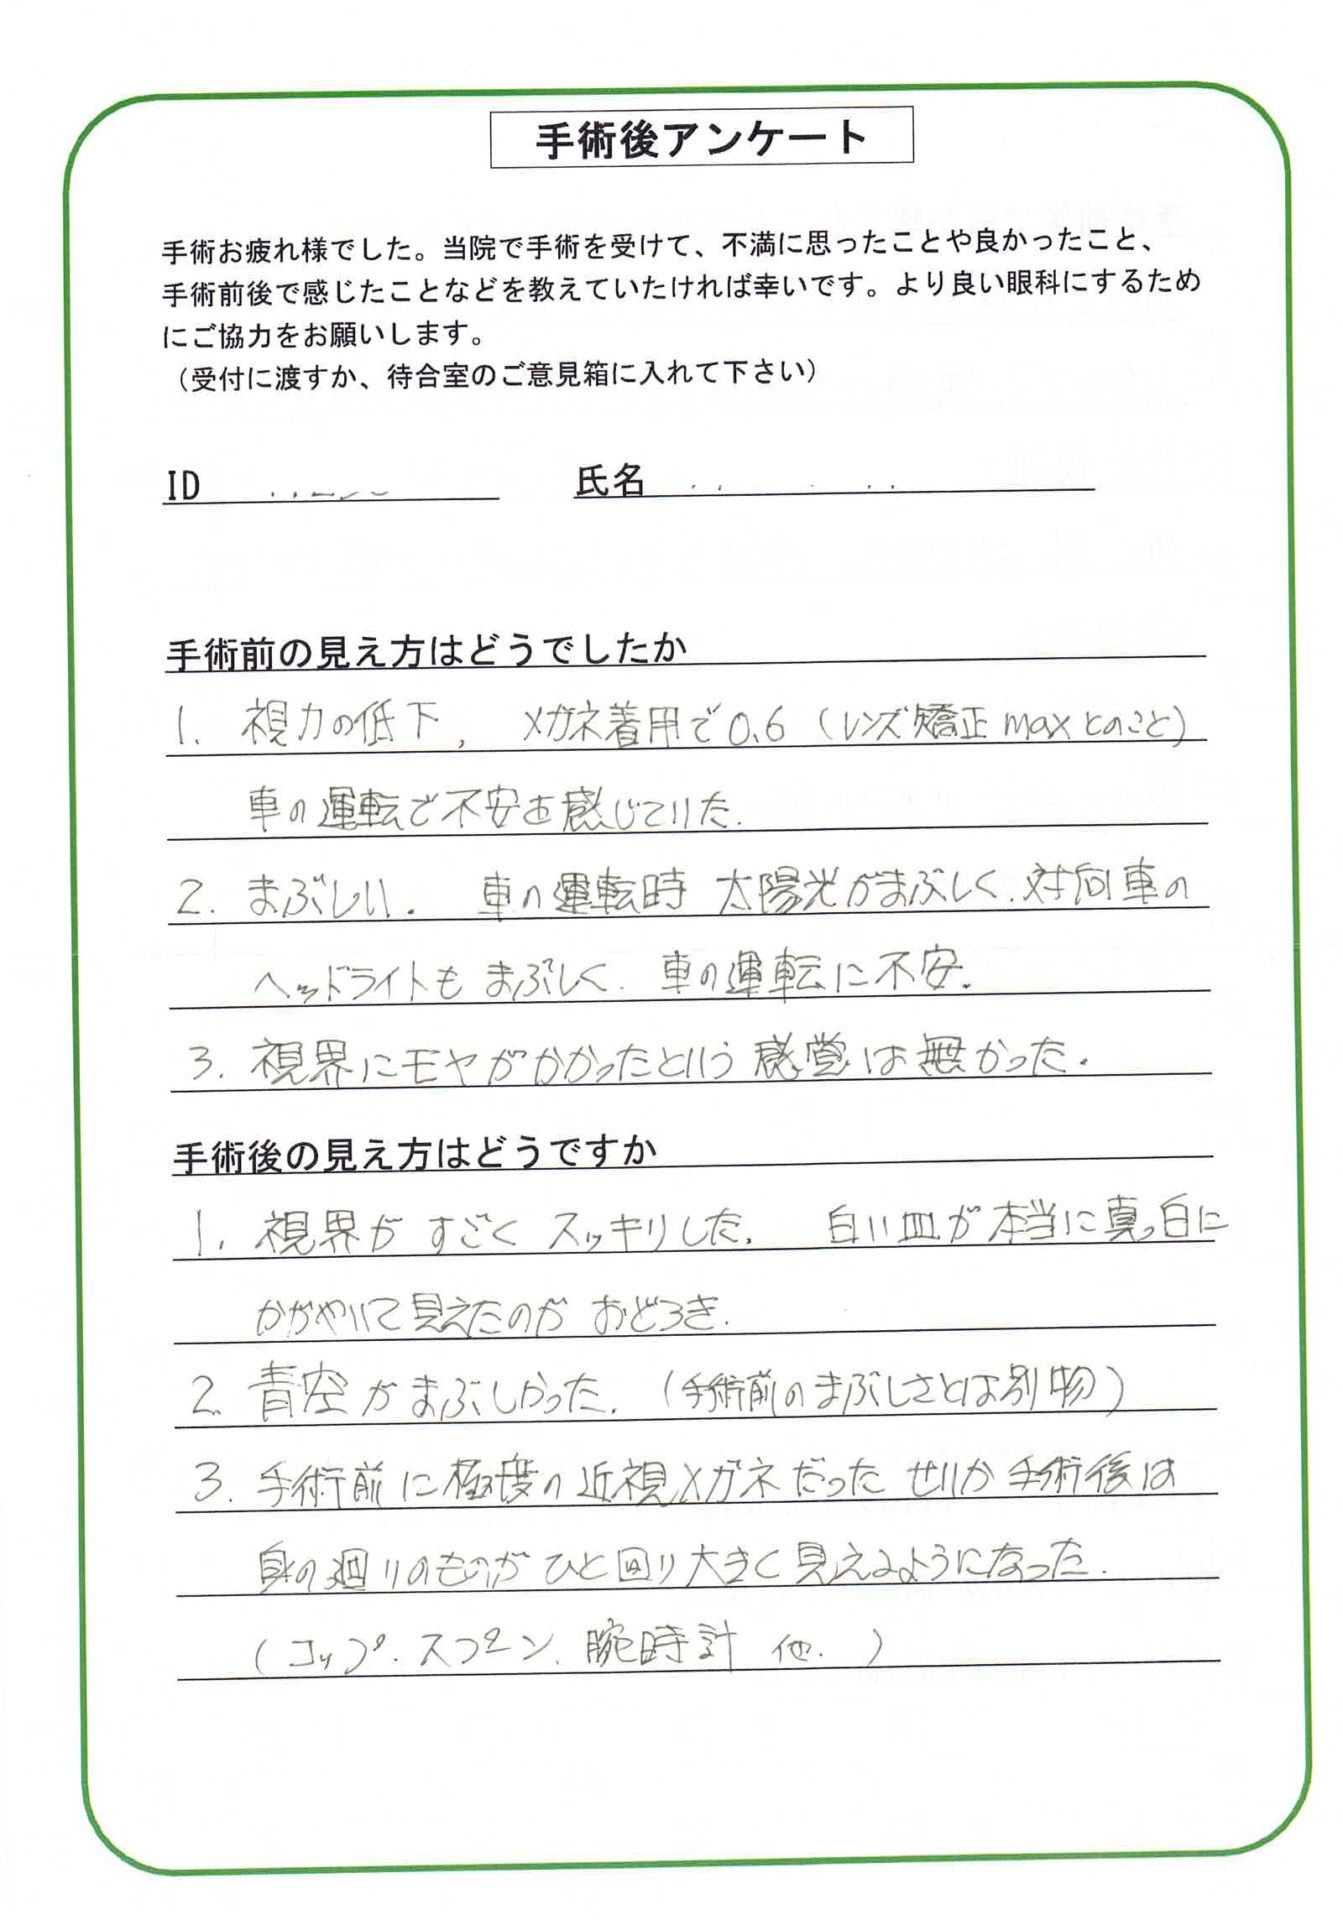 手術後アンケート
手術お疲れ様でした。当院で手術を受けて、不満に思ったことや良かったこと、
手術前後で感じたことなどを教えていたければ幸いです。より良い眼科にするため
にご協力をお願いします。
（受付に渡すか、待合室のご意見箱に入れて下さい）
ID 氏名
手術前の見え方はどうでしたか
1. 視力の低下, メガネ着用で0.6（レンズ矯正maxとのこと）
車の運転で不安を感じていた.
2. まぶしい. 車の運転時 太陽光がまぶしく. 対向車の
ヘッドライトも まぶしく. 車の運転に不安.
3. 視界にモヤがかかったという 感覚は無かった.
手術後の見え方はどうですか
1. 視界が すごく スッキリした. 白い皿が本当に真っ白に
かがやいて見えたのが おどろき.
2. 青空がまぶしかった.（手術前のまぶしさとは別物）
3. 手術前に極度の近視メガネだった せいか手術後は
身の廻りのものが ひと回り大きく見えるようになった.
（コップ. スプーン. 腕時計 他. ）